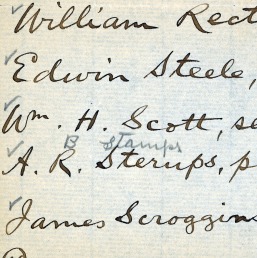 ✓ William Rect
✓ Edwin Steele,
✓ Wm. H. Scott, se
B Stamps
✓ A. R. Sterups, p
✓ James Scroggins